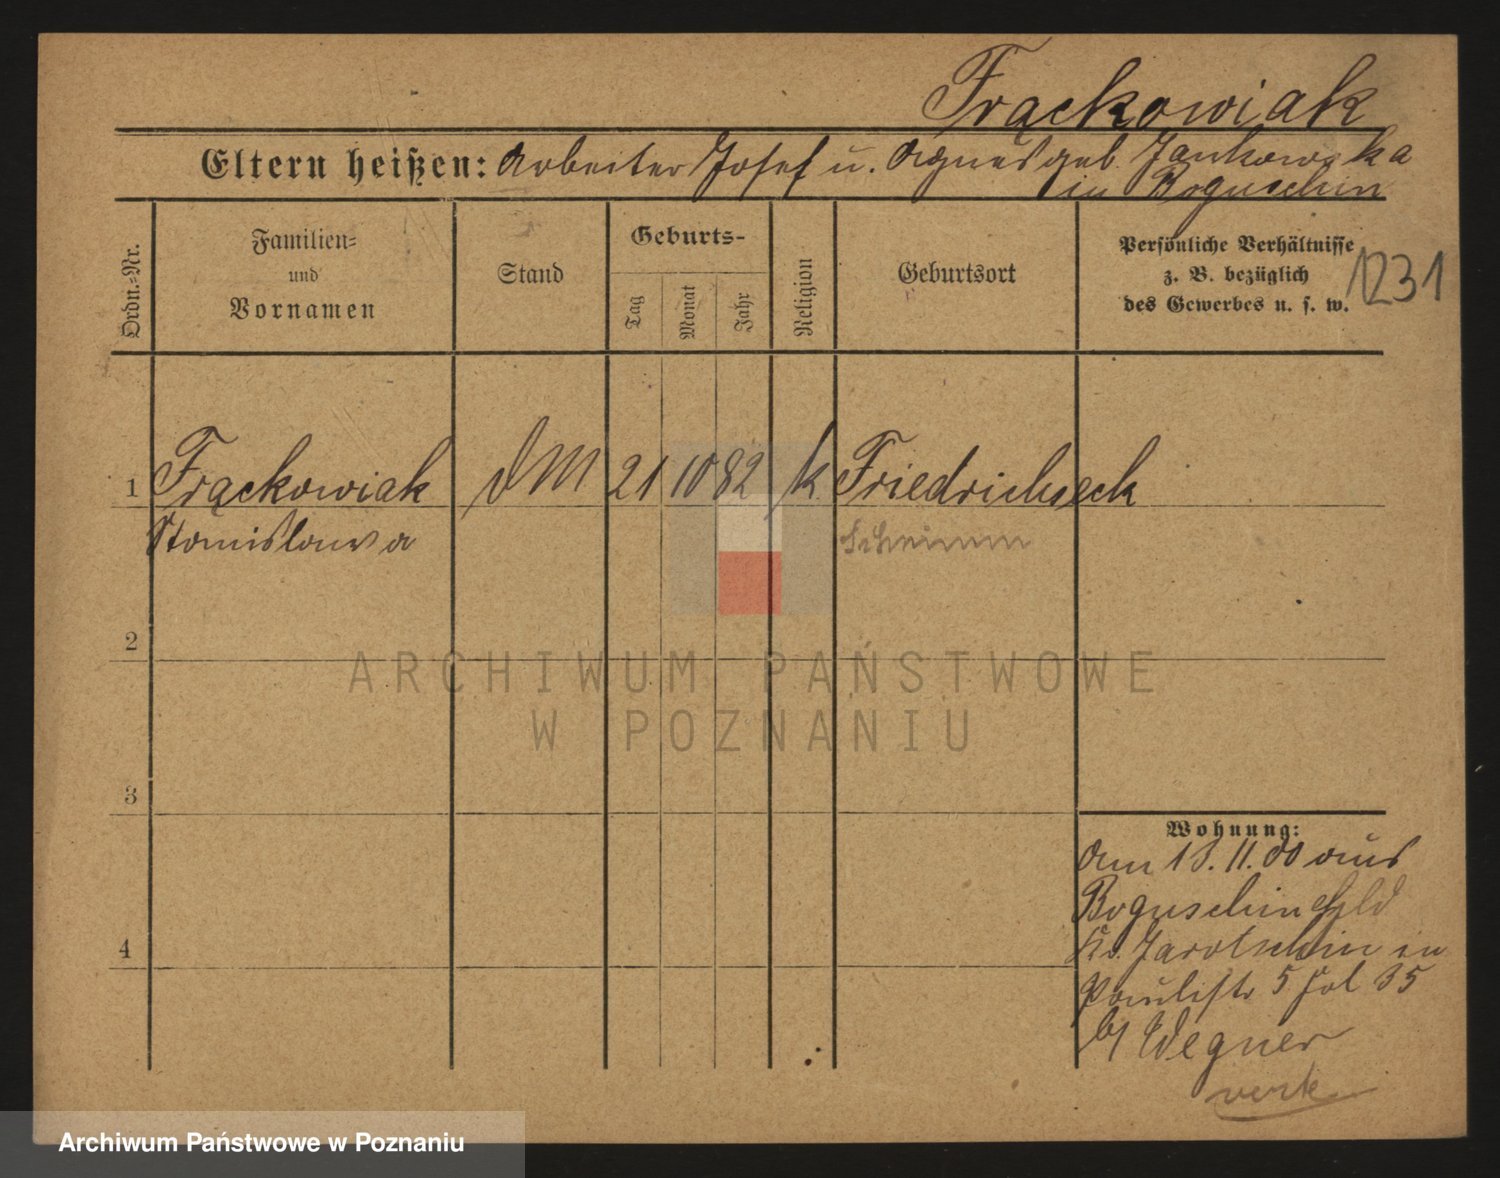 Frąckowiak
Eltern heißen: Arbeiter Josef u. Agnes geb. Jankowska
in Boguschin
Ordn.-Nr.
Familien-
und
Vornamen
Stand
Geburts-
Tag
Monat
Jahr
Religion
Geburtsort
Persönliche Verhältnisse
z. B. bezüglich
des Gewerbes u. s. w.
1231
1 Frąckowiak DM 21 10 82 k Friedrichseck
Stanislawa Schrimm
2
ARCHIWUM PAŃSTWOWE
W POZNANIU
3
Wohnung:
Am 13.11.00 aus
Boguschin
Kr. Jarotschin in
4
Paulistr 5 fol 35
b/ Wegner
verk
Archiwum Państwowe w Poznaniu